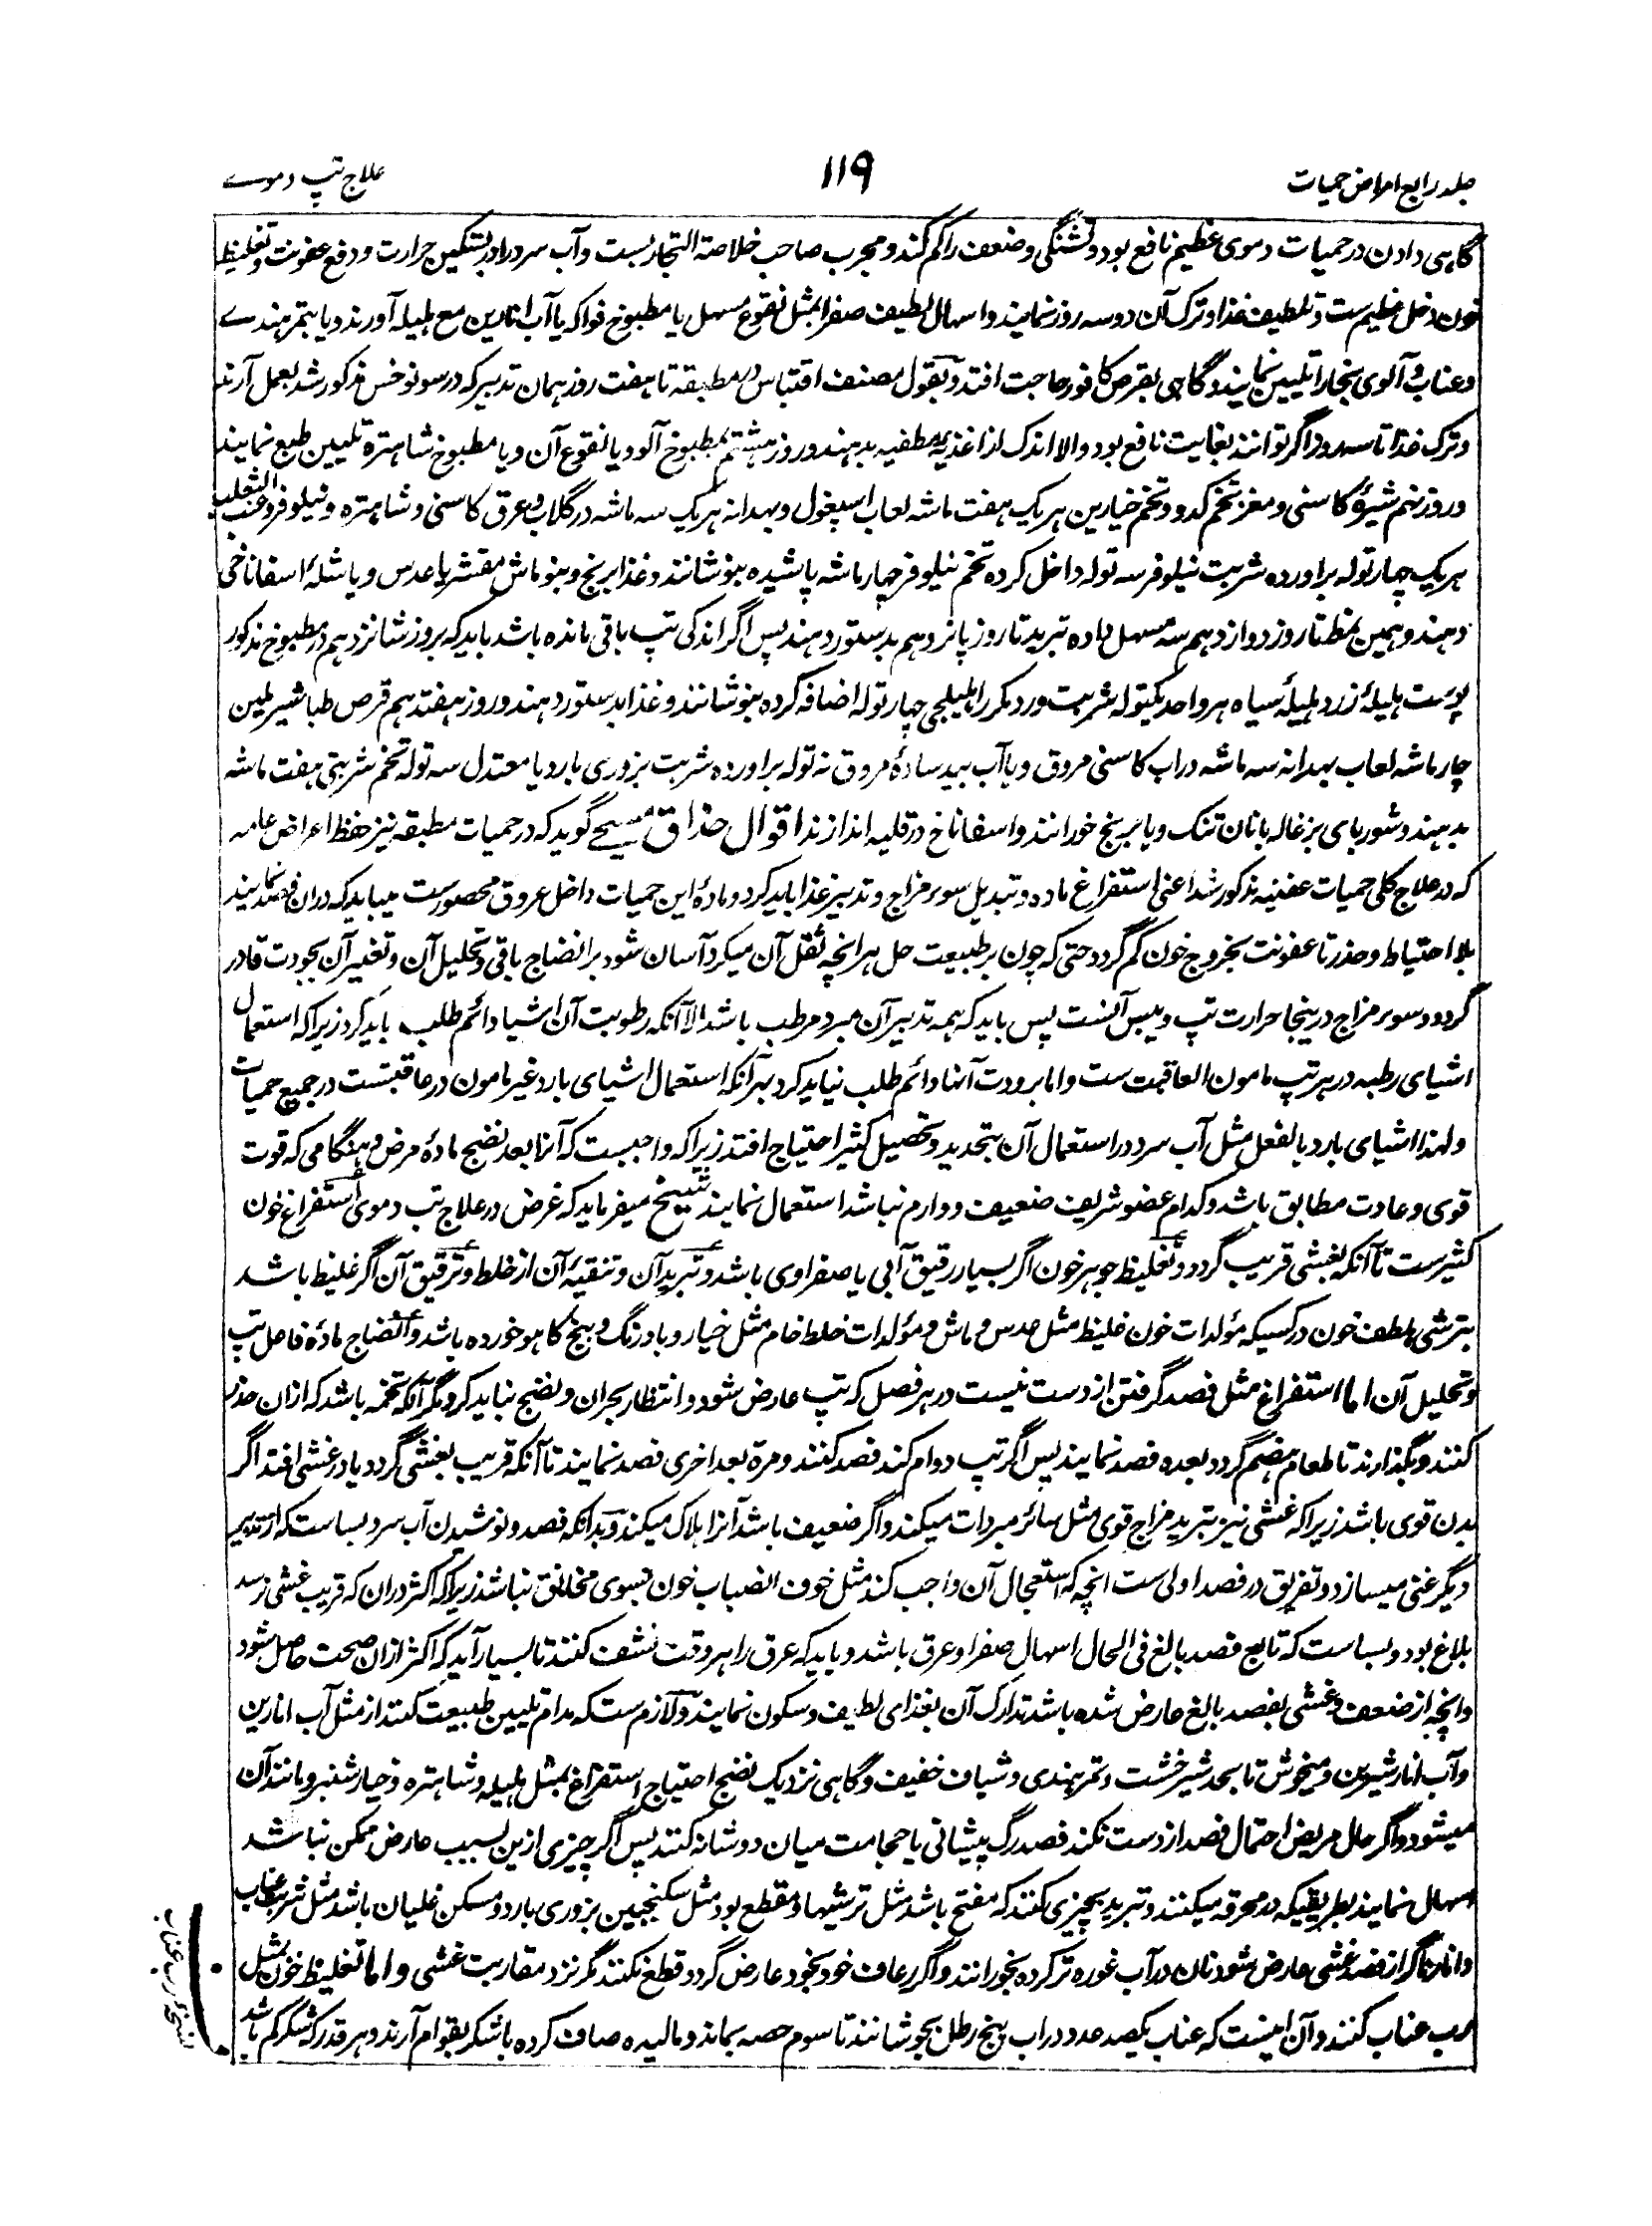 جلد رابع امراض حمیات
۱۱۹
علاج تپ دموے
گاہی دادن در حمیات دموی عظیم نافع بود و تشنگی و ضعف را کم کند و مجرب صاحب خلاصة التجاربست و آب سرد را در تسکین حرارت و دفع عفونت و تغلیظ
خون دخل عظیم ست و تلطیف غذا و ترک آن دو سه روز نمایند و اسهال لطیف صفرا بمثل نقوع مسهل یا مطبوخ فواکه یا آب انارین مع هلیله آورند و یا بتمر هندے
و عناب و آلوی بخارا تلیین نمایند و گاہی بقرص کافور حاجت افتد و بقول مصنف اقتباس در مطبقه تا هفت روز همان تدبیر که در سونوخس مذکور شد بعمل آرند
و ترک غذا تا سه روز اگر توانند بغایت نافع بود و الا اندک از اغذیهٔ مطفیه بدهند و روز هشتم بمطبوخ آلو و یا نقوع آن و یا مطبوخ شاهتره تلیین طبع نمایند
و روز نهم شیرهٔ کاسنی و مغز تخم کدو و تخم خیارین هر یک هفت ماشه لعاب اسپغول و بهدانه هر یک سه ماشه در گلاب و عرق کاسنی و شاهتره و نیلوفر و عنب الثعلب
هر یک چهار توله براورده شربت نیلوفر سه توله داخل کرده تخم نیلوفر چهار ماشه پاشیده بنوشانند و غذا برنج و بنوماش مقشر یا عدس و یا شلهٔ اسفاناخی
دهند و بهمین نمط تا روز دوازدهم سه مسهل داده تبرید تا روز پانزدهم بدستور دهند پس اگر اندکی تپ باقی مانده باشد باید که بروز شانزدهم در مطبوخ مذکور
پوست هلیلهٔ زرد هلیلهٔ سیاه هر واحد یکتوله شربت ورد مکرر اهلیلجی چهار توله اضافه کرده بنوشانند و غذا بدستور دهند و روز هفتدهم قرص طباشیر ملین
چار ماشه لعاب بهدانه سه ماشه دراب کاسنی مروق و یا آب بید سادهٔ مروق نه توله براورده شربت بزوری بارد یا معتدل سه توله تخم شربتی هفت ماشه
بدهند و شوربای بزغاله بانان تنک و یا برنج خورانند و اسفاناخ در قلیه اندازند اقوال حذاق مسیحے گوید که در حمیات مطبقه نیز حفظ اعراض عامه
که در علاج کلی حمیات عفنیه مذکور شد اعنی استفراغ ماده و تبدیل سوء مزاج و تدبیر غذا باید کرد و مادهٔ این حمیات داخل عروق محصورست میباید که دران فصد نمایند
بلا احتیاط و حذر تا عفونت بخروج خون کم گردد حتی که چون بر طبیعت حمل هرانچه ثقل آن میکرد آسان شود بر انضاج باقی و تحلیل آن و تغییر آن بجودت قادر
گردد و سوء مزاج درینجا حرارت تپ و یبس آنست پس باید که همه تدبیر آن مبرد مرطب باشد الا آنکه رطوبت آن اشیا دائم طلب باید کرد زیرا که استعمال
اشیای رطبه در هر تپ مامون العاقبت ست و اما برودت آنها دائم طلب نباید کرد بهر آنکه استعمال اشیای بارد غیر مامون در عاقبتست در جمیع حمیات
و لهذا اشیای بارد بالفعل مثل آب سرد در استعمال آن بتحدید و تحصیل کثیر احتیاج افتد زیرا که واجبست که آنرا بعد نضج مادهٔ مرض و هنگامی که قوت
قوی و عادت مطابق باشد و کدام عضو شریف ضعیف و وارم نباشد استعمال نمایند شیخ میفرماید که غرض در علاج تپ دموی استفراغ خون
کثیرست تا آنکه بغشی قریب گردد و تغلیظ جوهر خون اگر بسیار رقیق آبی یا صفراوی باشد و تبرید آن و تنقیهٔ آن از خلط و ترقیق آن اگر غلیظ باشد
بترشی ملطف خون در کسیکه مولدات خون غلیظ مثل عدس و ماش و مولدات خلط خام مثل خیار و بادرنگ و بیخ کاهو خورده باشد و انضاج مادهٔ فاعل تپ
و تحلیل آن اما استفراغ مثل فصد گرفتن از دست نیست در هر فصل که تپ عارض شود و انتظار بحران و نضج نباید کرد مگر آنکه تخمه باشد که ازان حذر
کنند و بگذارند تا طعام هضم گردد بعده فصد نمایند پس اگر تپ دوام کند فصد کنند و مرة بعد اخری فصد نمایند تا آنکه قریب بغشی گردد یا در غشی افتد اگر
بدن قوی باشد زیرا که غشی نیز تبرید مزاج قوی مثل سائر مبردات میکند و اگر ضعیف باشد آنرا هلاک میکند و بدانکه فصد و نوشیدن آب سرد بساست که از تدبیر
دیگر غنی میسازد و تفریق در فصد اولی ست انچه که استعجال آن واجب کند مثل خوف انصباب خون بسوی مخانق نباشد زیرا که اکثر دران که قریب غشی رسد
بلاغ بود و بساست که تابع فصد بالغ فی الحال اسهال صفرا و عرق باشد و باید که عرق را هر وقت نشف کنند تا بسیار آید که اکثر ازان صحت حاصل شود
و انچه از ضعف و غشی بفصد بالغ عارض شده باشد تدارک آن بغذای لطیف و سکون نمایند و لازم ست که مدام تلیین طبیعت کنند از مثل آب انارین
و آب انار شیرین و میخوش تا بحد شیر خشت و تمر هندی و شیاف خفیف و گاهی نزدیک نضج احتیاج استفراغ بمثل هلیله و شاهتره و خیارشنبر و مانند آن
میشود و اگر حال مریض احتمال فصد از دست نکند فصد رگ پیشانی یا حجامت میان دو شانه کنند پس اگر چیزی ازین بسبب عارض ممکن نباشد
اسهال نمایند بطریقیکه در محرقه میکنند و تبرید بچیزی کنند که مفتح باشد مثل ترشیها و مقطع بود مثل سکنجبین بزوری بارد و مسکن غلیان باشد مثل شربت عناب
و انار و اگر از فصد غشی عارض شود نان در آب غوره تر کرده بخورانند و اگر رعاف خود بخود عارض گردد قطع نکنند مگر نزد مقاربت غشی و اما تغلیظ خون بمثل
رب عناب کنند و آن اینست که عناب یکصد عدد دراب پنج رطل بجوشانند تا سوم حصه بماند و مالیده صاف کرده باشکر بقوام آرند و هر قدر که شکر کم باشد
نسخهٔ رب عناب